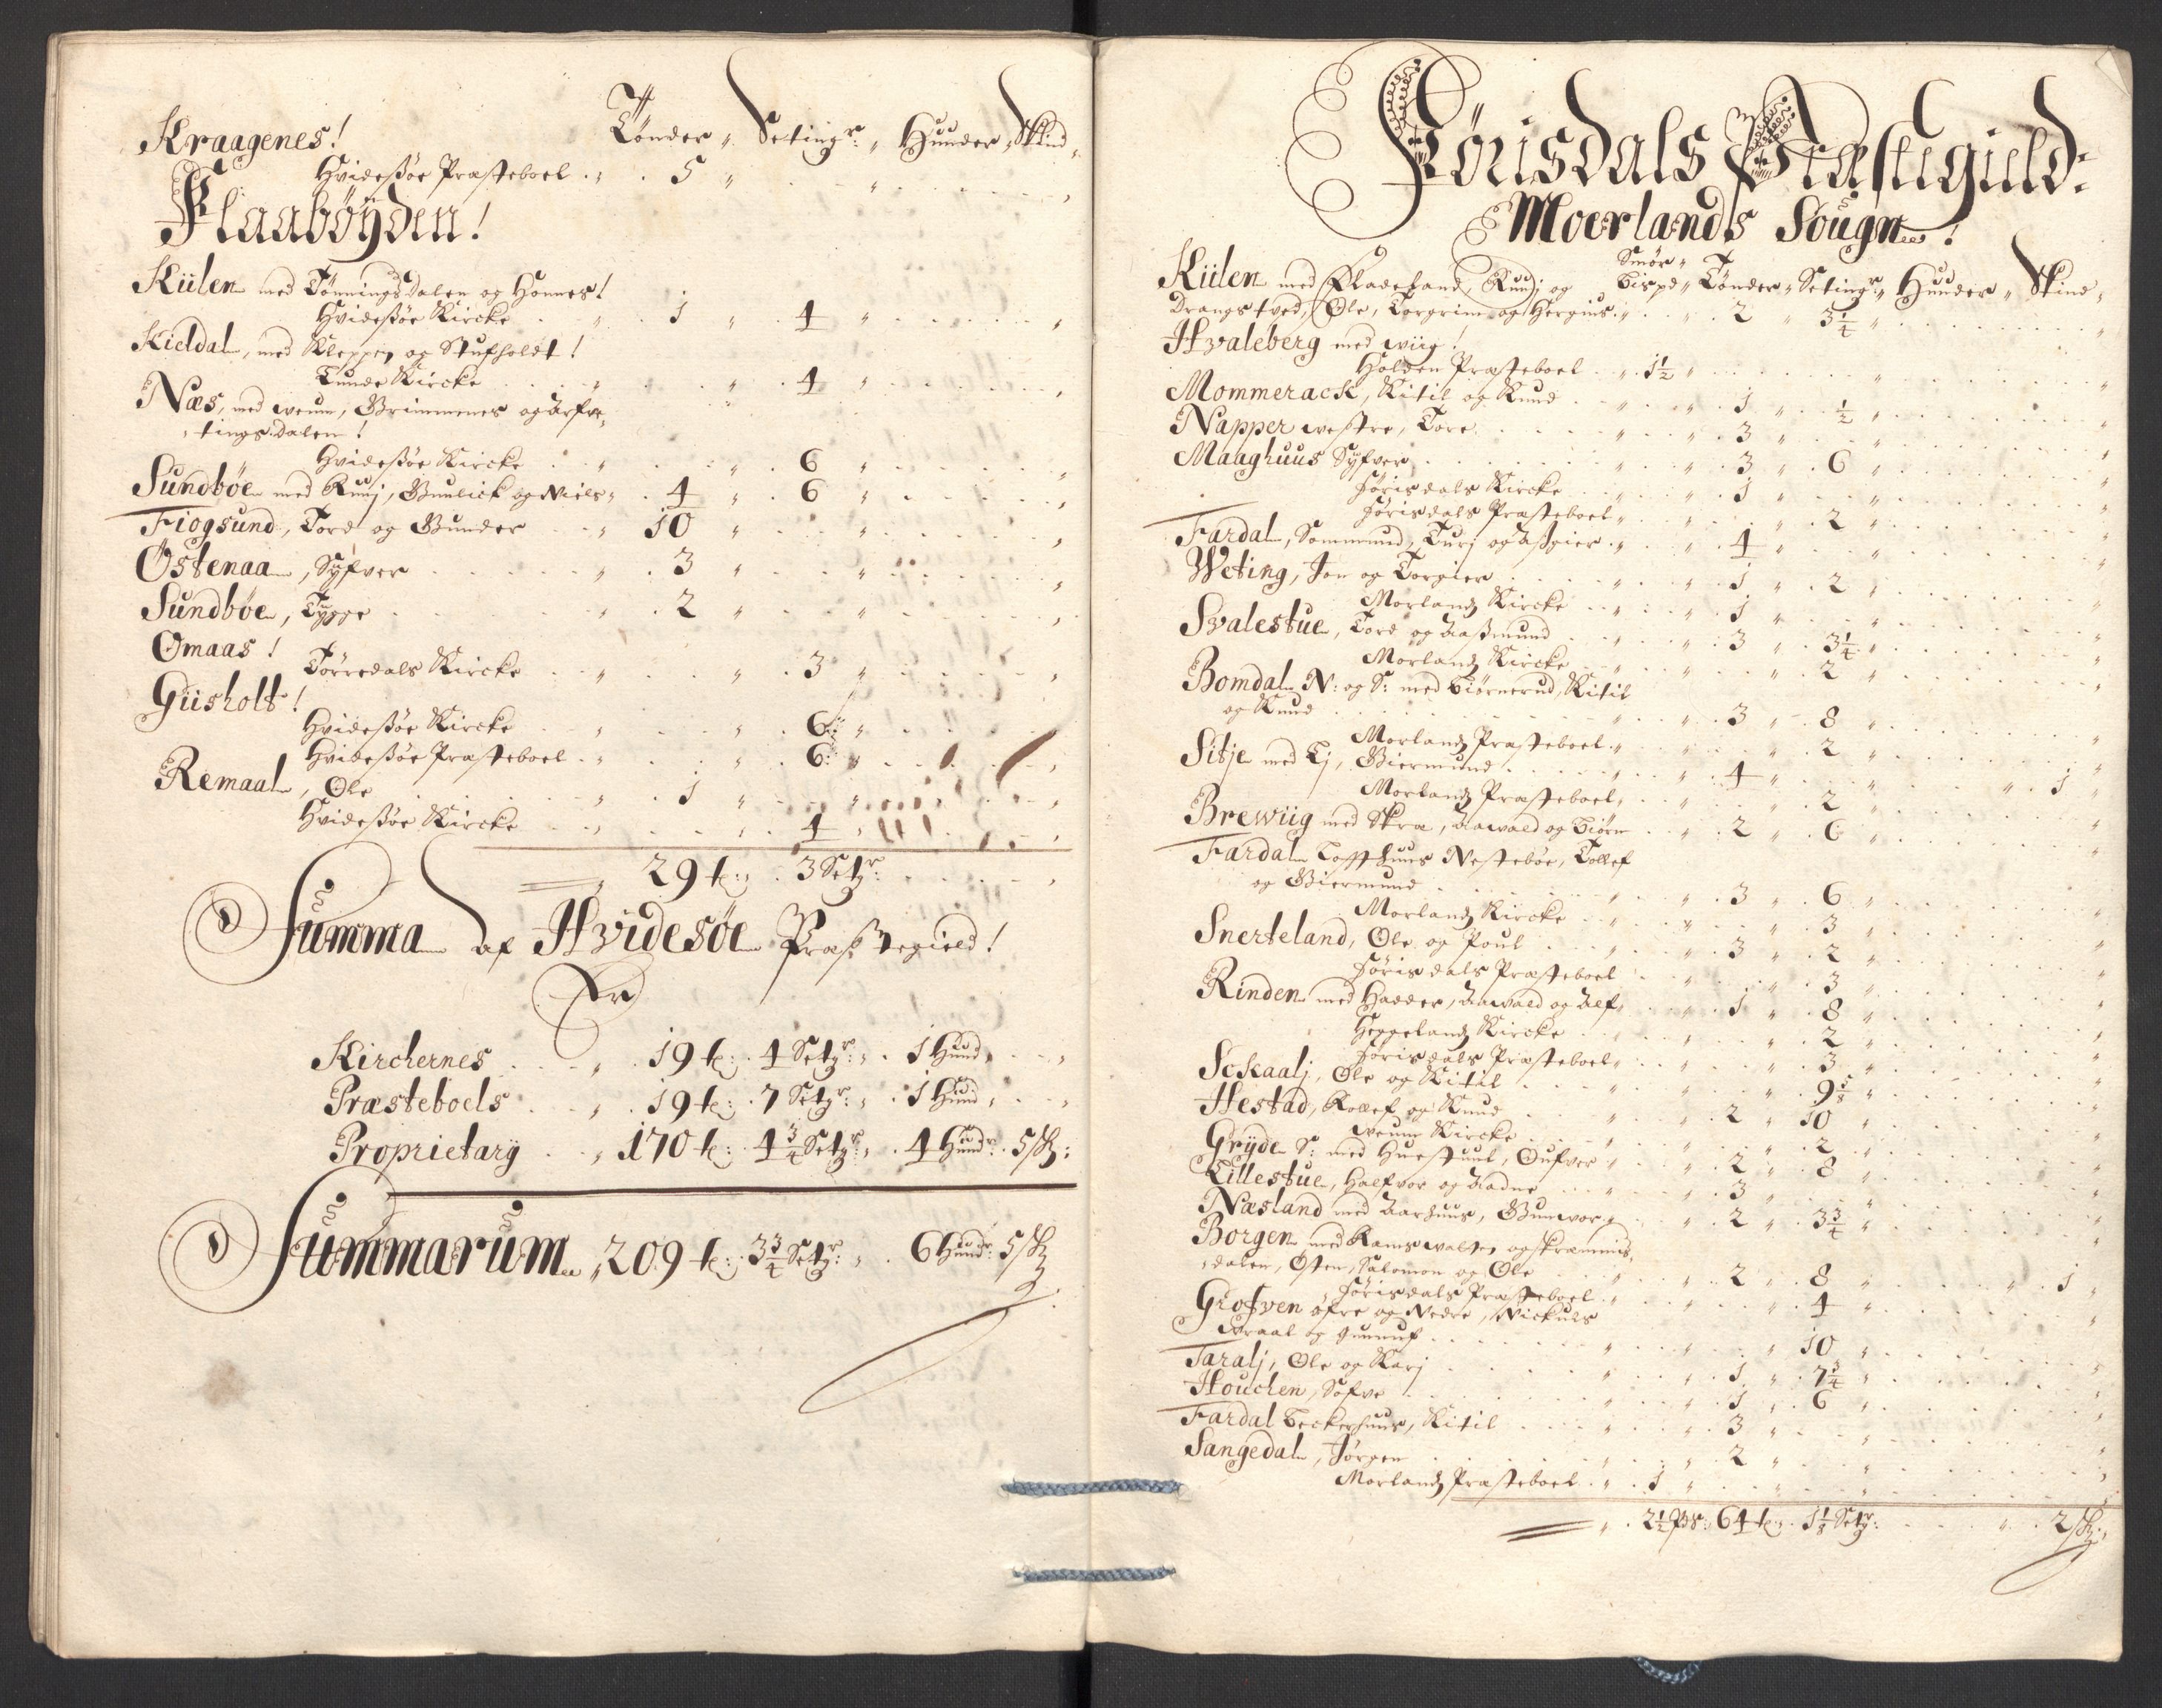 Kraagenes! Tønder „ Setingr: „ Hunder „ Skind „
Hvidesøe Præsteboel . „ . 5 „ . . „ . . . „
Flaabøÿden!
Kiilen med Tønningsdalen og Honnes!
Hvidesøe Kircke . „ . 1 „ . 4 „ . . . „
Kieldal, med Kleppen og Stufholdt!
Lunde Kircke . . „ . . „ . 4 „ . . . „
Næs, med weum, Grimmenes og
tingsdalen!
Hvidesøe Kircke . „ . . „ . 6 „ . . . „
Sundbøe med Ruuj, Gunlick og Niels „ . 4 „ . 6 „ . . . „
Fiogsund, Tord og Gunder . . „ 10 „ . . „ . . . „
Østenaa, Syfver . . . . „ . 3 „ . . „ . . . „
Sundbøe, Tygge . . . . „ . 2 „ . . „ . . . „
Omaas!
Tørredals Kircke . . „ . . „ . 3 „ . . . „
Giisholt!
Hvidesøe Kircke . . „ . . „ . 6 „ . . . „
Hvidesøe Præsteboel . „ . . „ . 6 „ . . . „
Remaal, Ole . . . . „ . 1 „ . . „ . . . „
Hvidesøe Kircke . . „ . . „ . 4 „ . . . „
29 t: . 3 Setgr: . . . „
Summa af Hvidesøe Præstegield!
Er
Kirchernes . . „ . 19 t: . 4 Setgr: „ . 1 Hund „ . . „
Præsteboels . . „ . 19 t: . 7 Setgr: „ . 1 Hund „ . . „
Proprietarÿ . . „ 170 t: . 4 3/4 Setgr: „ . 4 Hundr: . 5 sk:
Summarum „ 209 t: . 3 3/4 Setgr: „ . 6 Hundr: 5 sk
Førisdals Præstegield:
Moerlands Sougn!
Smør „
Kiilen med Fladeland, Ruuj og Bispd „ Tønder „ Setingr: „ Hunder „ Skind „
Drangstved, Ole, Torgrim og Hergius . „ . . 2 „ 3 1/4 „ . . . „
Hvaleberg med wiig!
Holden Præsteboel . „ 1 1/2 „ . . „ . . . „
Mommerack, Kitil og Knud . . „ . „ . 1 „ . 1/2 „ . . . „
Napper westre, Tore . . . „ . „ . 3 „ . . „ . . . „
Maaghuus Syfver . . . „ . „ . 3 „ . 6 „ . . . „
Førisdals Kircke . . „ . „ . 1 „ . . „ . . . „
Førisdals Præsteboel „ . „ . . „ . 2 „ . . . „
Fardal, Sommund, Turj og Asgier . „ . „ . 4 „ . . „ . . . „
Weting, Jon og Torgier . . . „ . „ . 1 „ . 2 „ . . . „
Morlandz Kircke . . „ . „ . 1 „ . . „ . . . „
Svalestue, Tord og Aasmund . . „ . „ . 3 „ . 3 1/4 „ . . . „
Morlandz Kircke . . „ . „ . . „ . 2 „ . . . „
Bomdal N: og S: med Biørnerud, Kitil
og Knud . . . . „ . „ . 3 „ . 8 „ . . . „
Morlandz Præsteboel . „ . „ . . „ . 2 „ . . . „
Sitje med Lj, Giermund . . . „ . „ . 4 „ . . „ . . „ . 1 „
Morlandz Præsteboel „ . „ . . „ . 2 „ . . . „
Brewiig med Skra, Aawald og Biørn . . „ . 2 „ . 6 „ . . . „
Fardal Toffthuus Nestebøe, Tollef
og Giermund . . . „ . „ . 3 „ . 6 „ . . . „
Morlandz Kircke . . „ . „ . . „ . 3 „ . . . „
Snerteland, Ole og Poul . . . „ . „ . 3 „ . 2 „ . . . „
Førisdals Præsteboel . „ . „ . . „ . 3 „ . . . „
Rinden med Hadder, Aawald og Alf „ . „ . 1 „ . 8 „ . . . „
Heggelandz Kircke . . „ . „ . . „ . 2 „ . . . „
Førisdals Præsteboel „ . „ . . „ . 3 „ . . . „
Sckaalj, Ole og Kitil . . . „ . „ . . „ . 9 5/8 „ . . . „
Hestad, Rollef og Knud . . . „ . „ . 2 „ 10 „ . . . „
weum Kircke . . „ . „ . . „ . 2 „ . . . „
Grÿde S: med Huestuul, Oufver „ . „ . 2 „ . 8 „ . . . „
Lillestue, Halfvor og Aadne . . „ . „ . 3 „ . . „ . . . „
Næsland med Aarhuus, Gunwor . „ . „ . 2 „ . 3 3/4 „ . . . „
Borgen med Ramswalten og Skrammis
dalen, Østen, Salomon og Ole . . „ . „ . 2 „ . 8 „ . . „ . 1 „
Førisdals Præsteboel „ . „ . . „ . 4 „ . . . „
Grofven øfre og Nedre, Nickuls
Wraal og Gunnuf . . . „ . „ . . „ 10 „ . . . „
Taralj, Ole og Karj . . . „ . „ . 1 „ . 7 3/4 „ . . . „
Houchen, Sofve . . . . „ . „ . 1 „ . 6 „ . . . „
Fardal Beckerhuus, Kitil . . . „ . „ . 3 „ . . „ . . . „
Sangedal, Jørgen . . . . „ . „ . 2 „ . . „ . . . „
Morlandz Præsteboel . „ . 1 „ . . „ . . . „
„ . 2 1/2 Bs: „ 64 t: . 1 1/8 Setgr: . . . „ . 2 sk: „